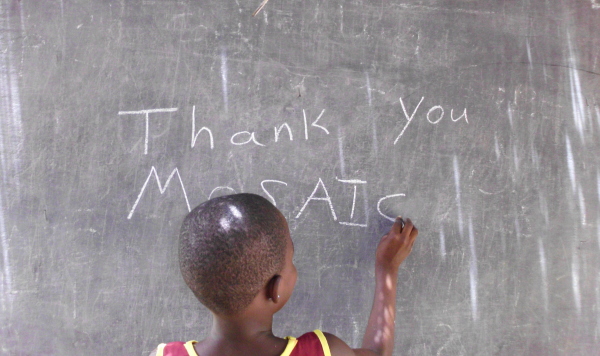 Thank you
MoSAIC